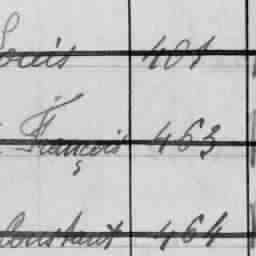 Louis 401
François 463
Constant 464